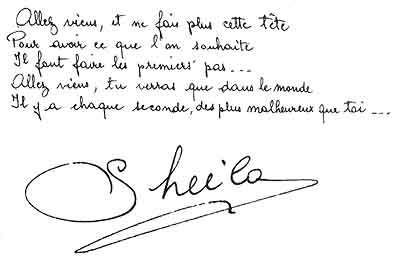 Allez viens, et ne fais plus cette tête
Pour avoir ce que l'on souhaite
Il faut faire les premiers pas...
Allez viens, tu verras que dans le monde
Il y a chaque seconde, des plus malheureux que toi...
Sheila